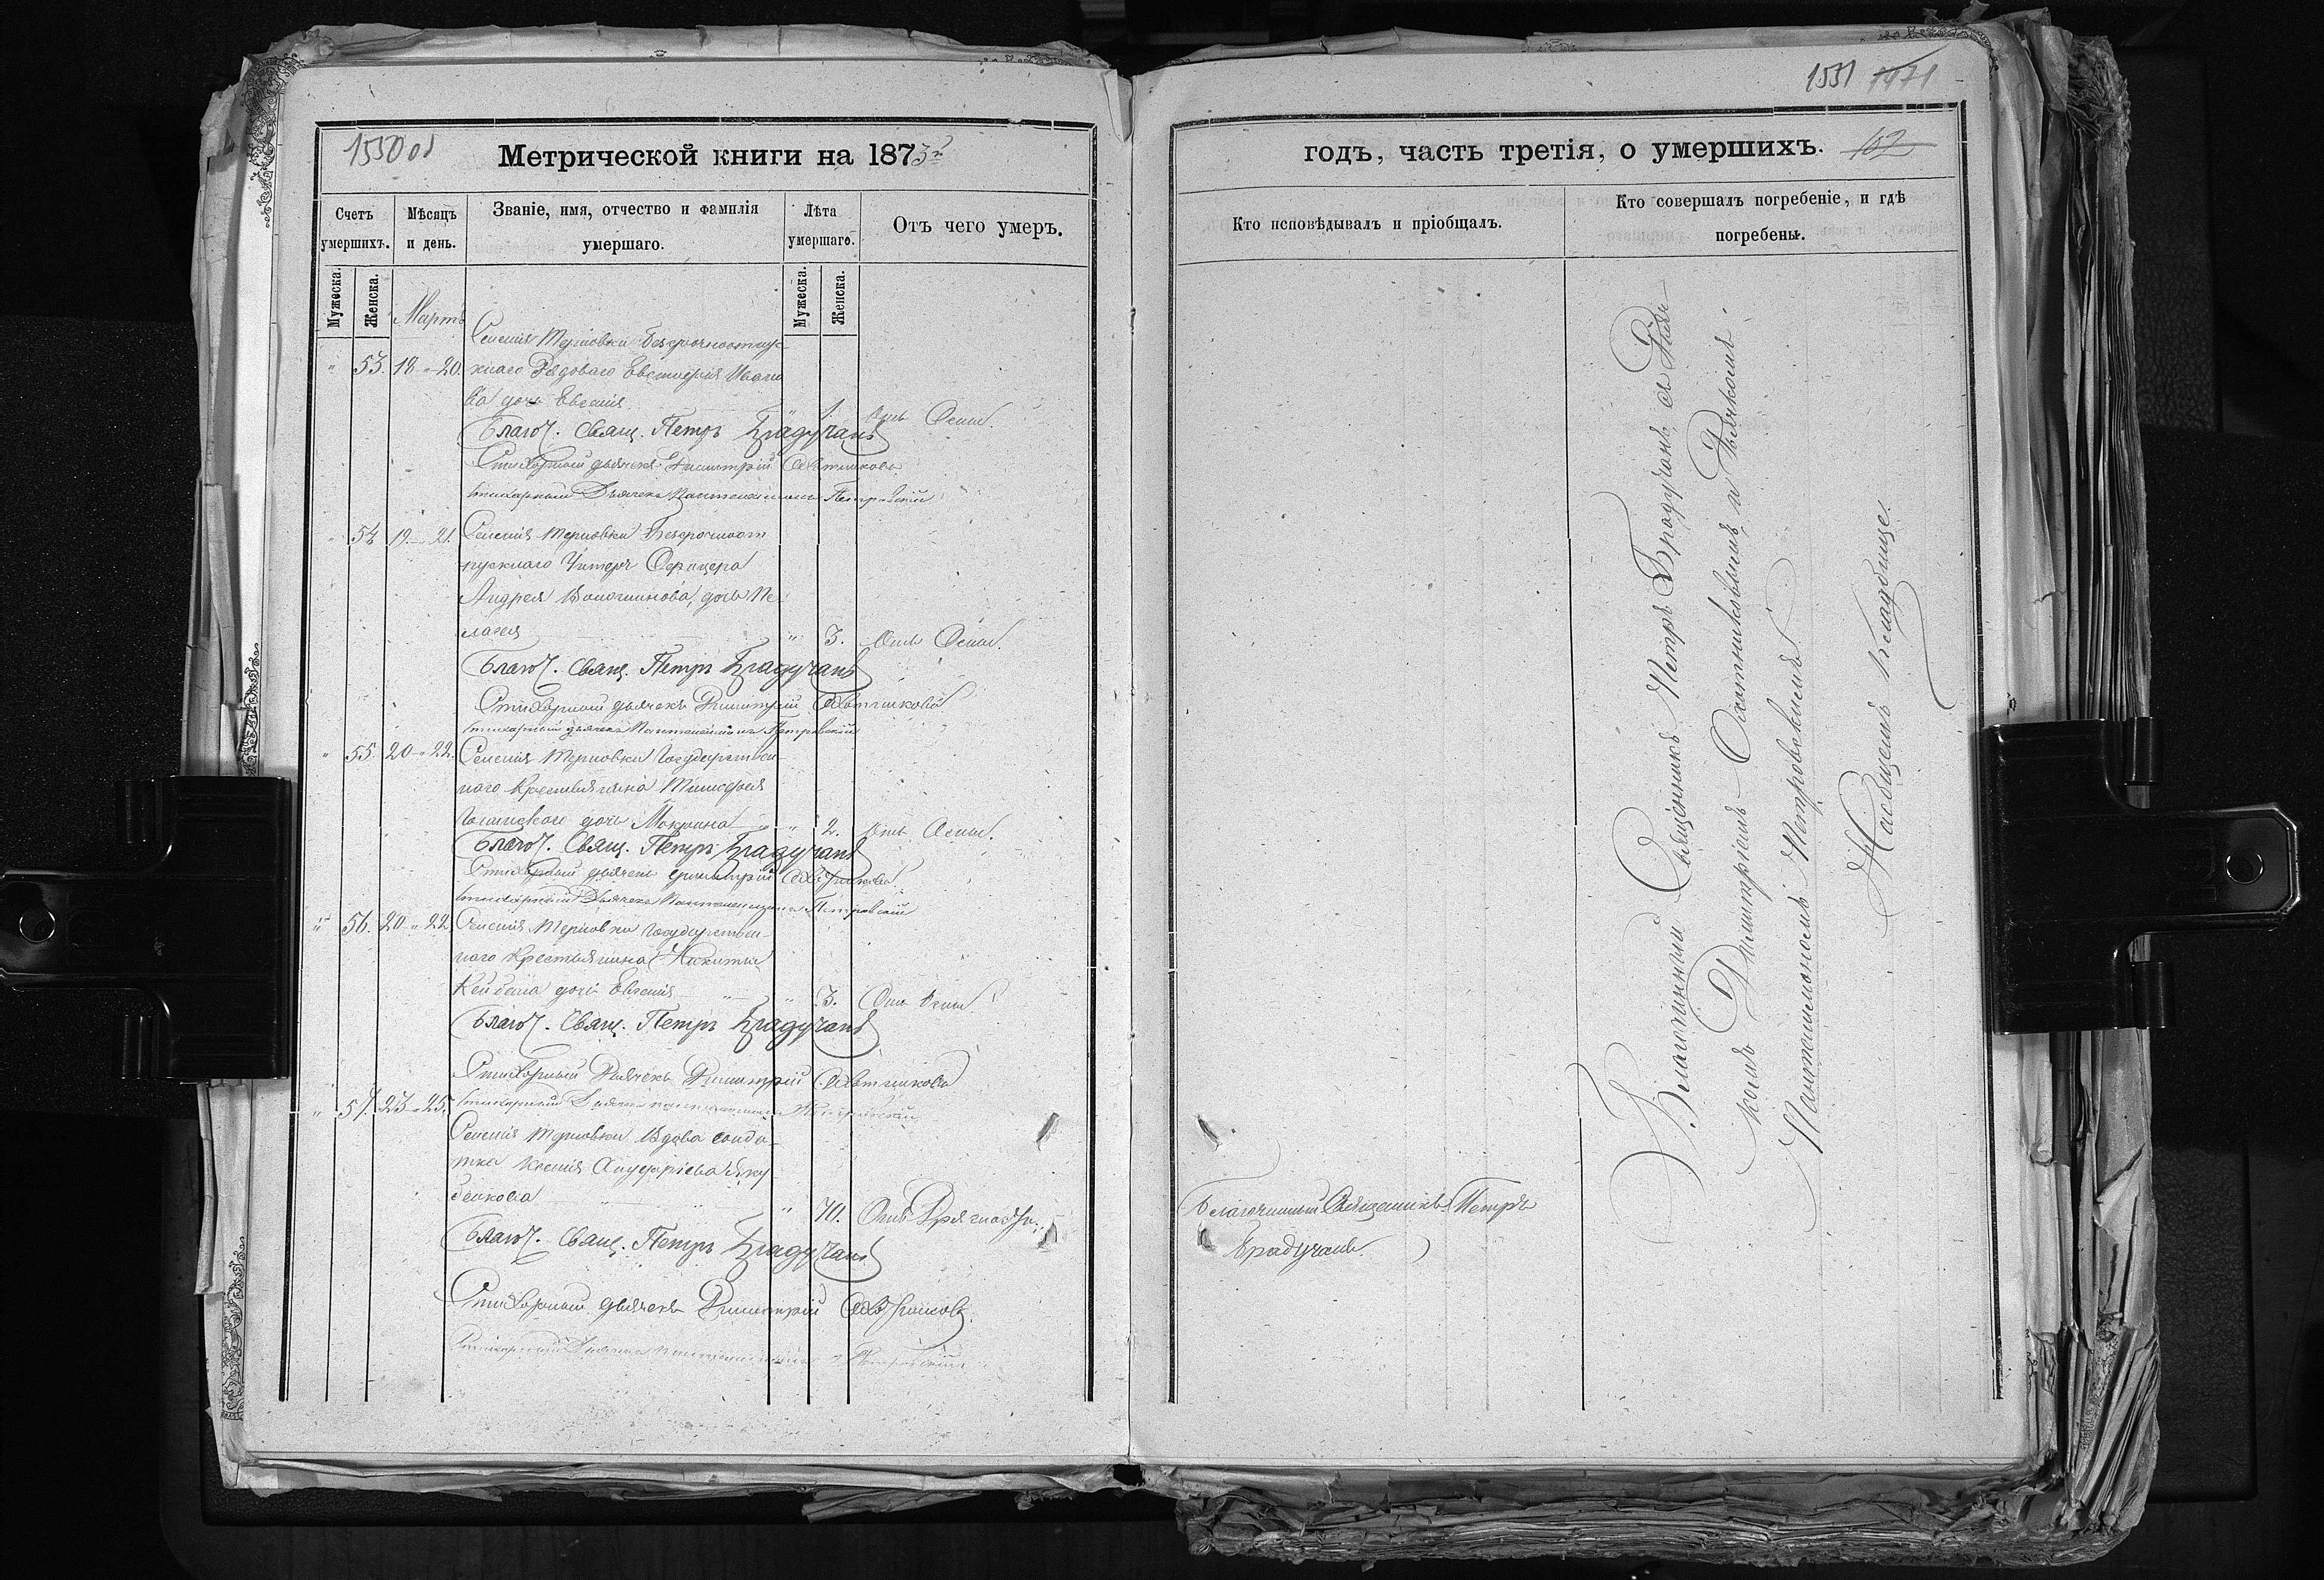 1550 об
Метрической книги на 1873й
Счетъ умершихъ.
Мѣсяцъ и день.
Званіе, имя, отчество и фамилія умершаго.
Лѣта умершаго.
Отъ чего умеръ.
Мужеска.
Женска.
Мужеска.
Женска.
Мартъ
Селенія Терновки безсрочноотпус-
" 53. 18 " 20. кнаго Рядоваго Евстафія Ивано
ва дочь Евгенія 1. Отъ Оспы.
Благоч. Свящ. Петръ Брадучанъ
Стихарный дьячекъ Димитрій
Стихарный Дьячекъ Пантелеимонъ Петровскій
" 54 19. — 21. Селенія Терновки Безсрочноот
пускнаго Унтеръ Офицера
Андрея Волочинова, дочь Пе-
лагея " 3. Отъ Оспы.
Благоч. Свящ. Петръ Брадучанъ
Стихарный дьячекъ Димитрій
Стихарный дьячекъ Пантелеимонъ Петровскій
" 55 20 " 22. Селенія Терновки Государствен-
наго Крестьянина Тимофея
дочь Мокрина " " 2. Отъ Оспы.
Благоч. Свящ. Петръ Брадучанъ
Стихарный дьячекъ Димитрій
Стихарный Дьячекъ Пантелеимонъ Петровскій
" 56. 20 " 22 Селенія Терновки Государствен-
наго Крестьянина Никиты
дочь Евгенія " " 3. Отъ Оспы
Благоч. Свящ. Петръ Брадучанъ
Стихарный Дьячекъ Димитрій
" 57. 23 " 25. Стихарный Дьячекъ Пантелеимонъ Петровскій
Селенія Терновки Вдова солда-
тка Ксенія
" 70. Отъ Дряхлости.
Благоч. Свящ. Петръ Брадучанъ
Стихарный дьячекъ Димитрій
Стихарный Дьячекъ Пантелеимонъ Петровскій
1551 1471
годъ, часть третія, о умершихъ. 102
Кто исповѣдывалъ и пріобщалъ.
Кто совершалъ погребеніе, и гдѣ погребены.
Благочинный Священникъ Петръ Брадучанъ съ Дьяч-
комъ Димитріемъ и Дьячкомъ
Пантелеимономъ Петровскимъ
На общемъ кладбище.
Благочинный Священникъ Петръ
Брадучанъ.